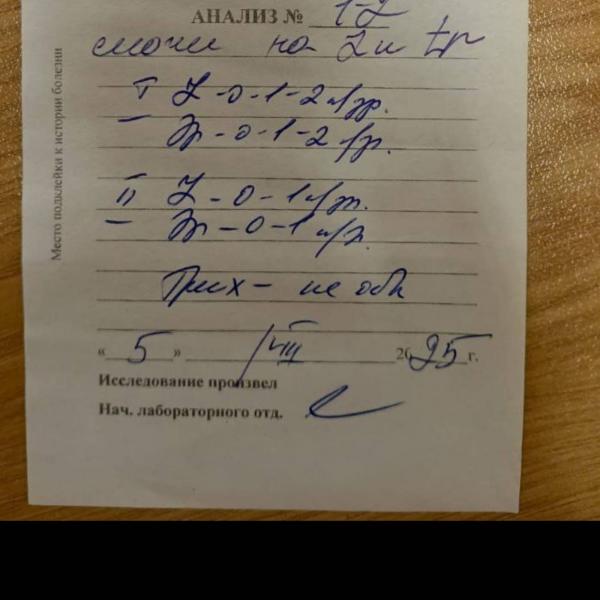 АНАЛИЗ № 1-2
на L и tr
I L - 0 - 1 - 2
- 0 - 1 - 2
II L - 0 - 1
- 0 - 1
Трих - не обн
« 5 » VIII 2025 г.
Исследование произвел
Нач. лабораторного отд.
Место подклейки к истории болезни